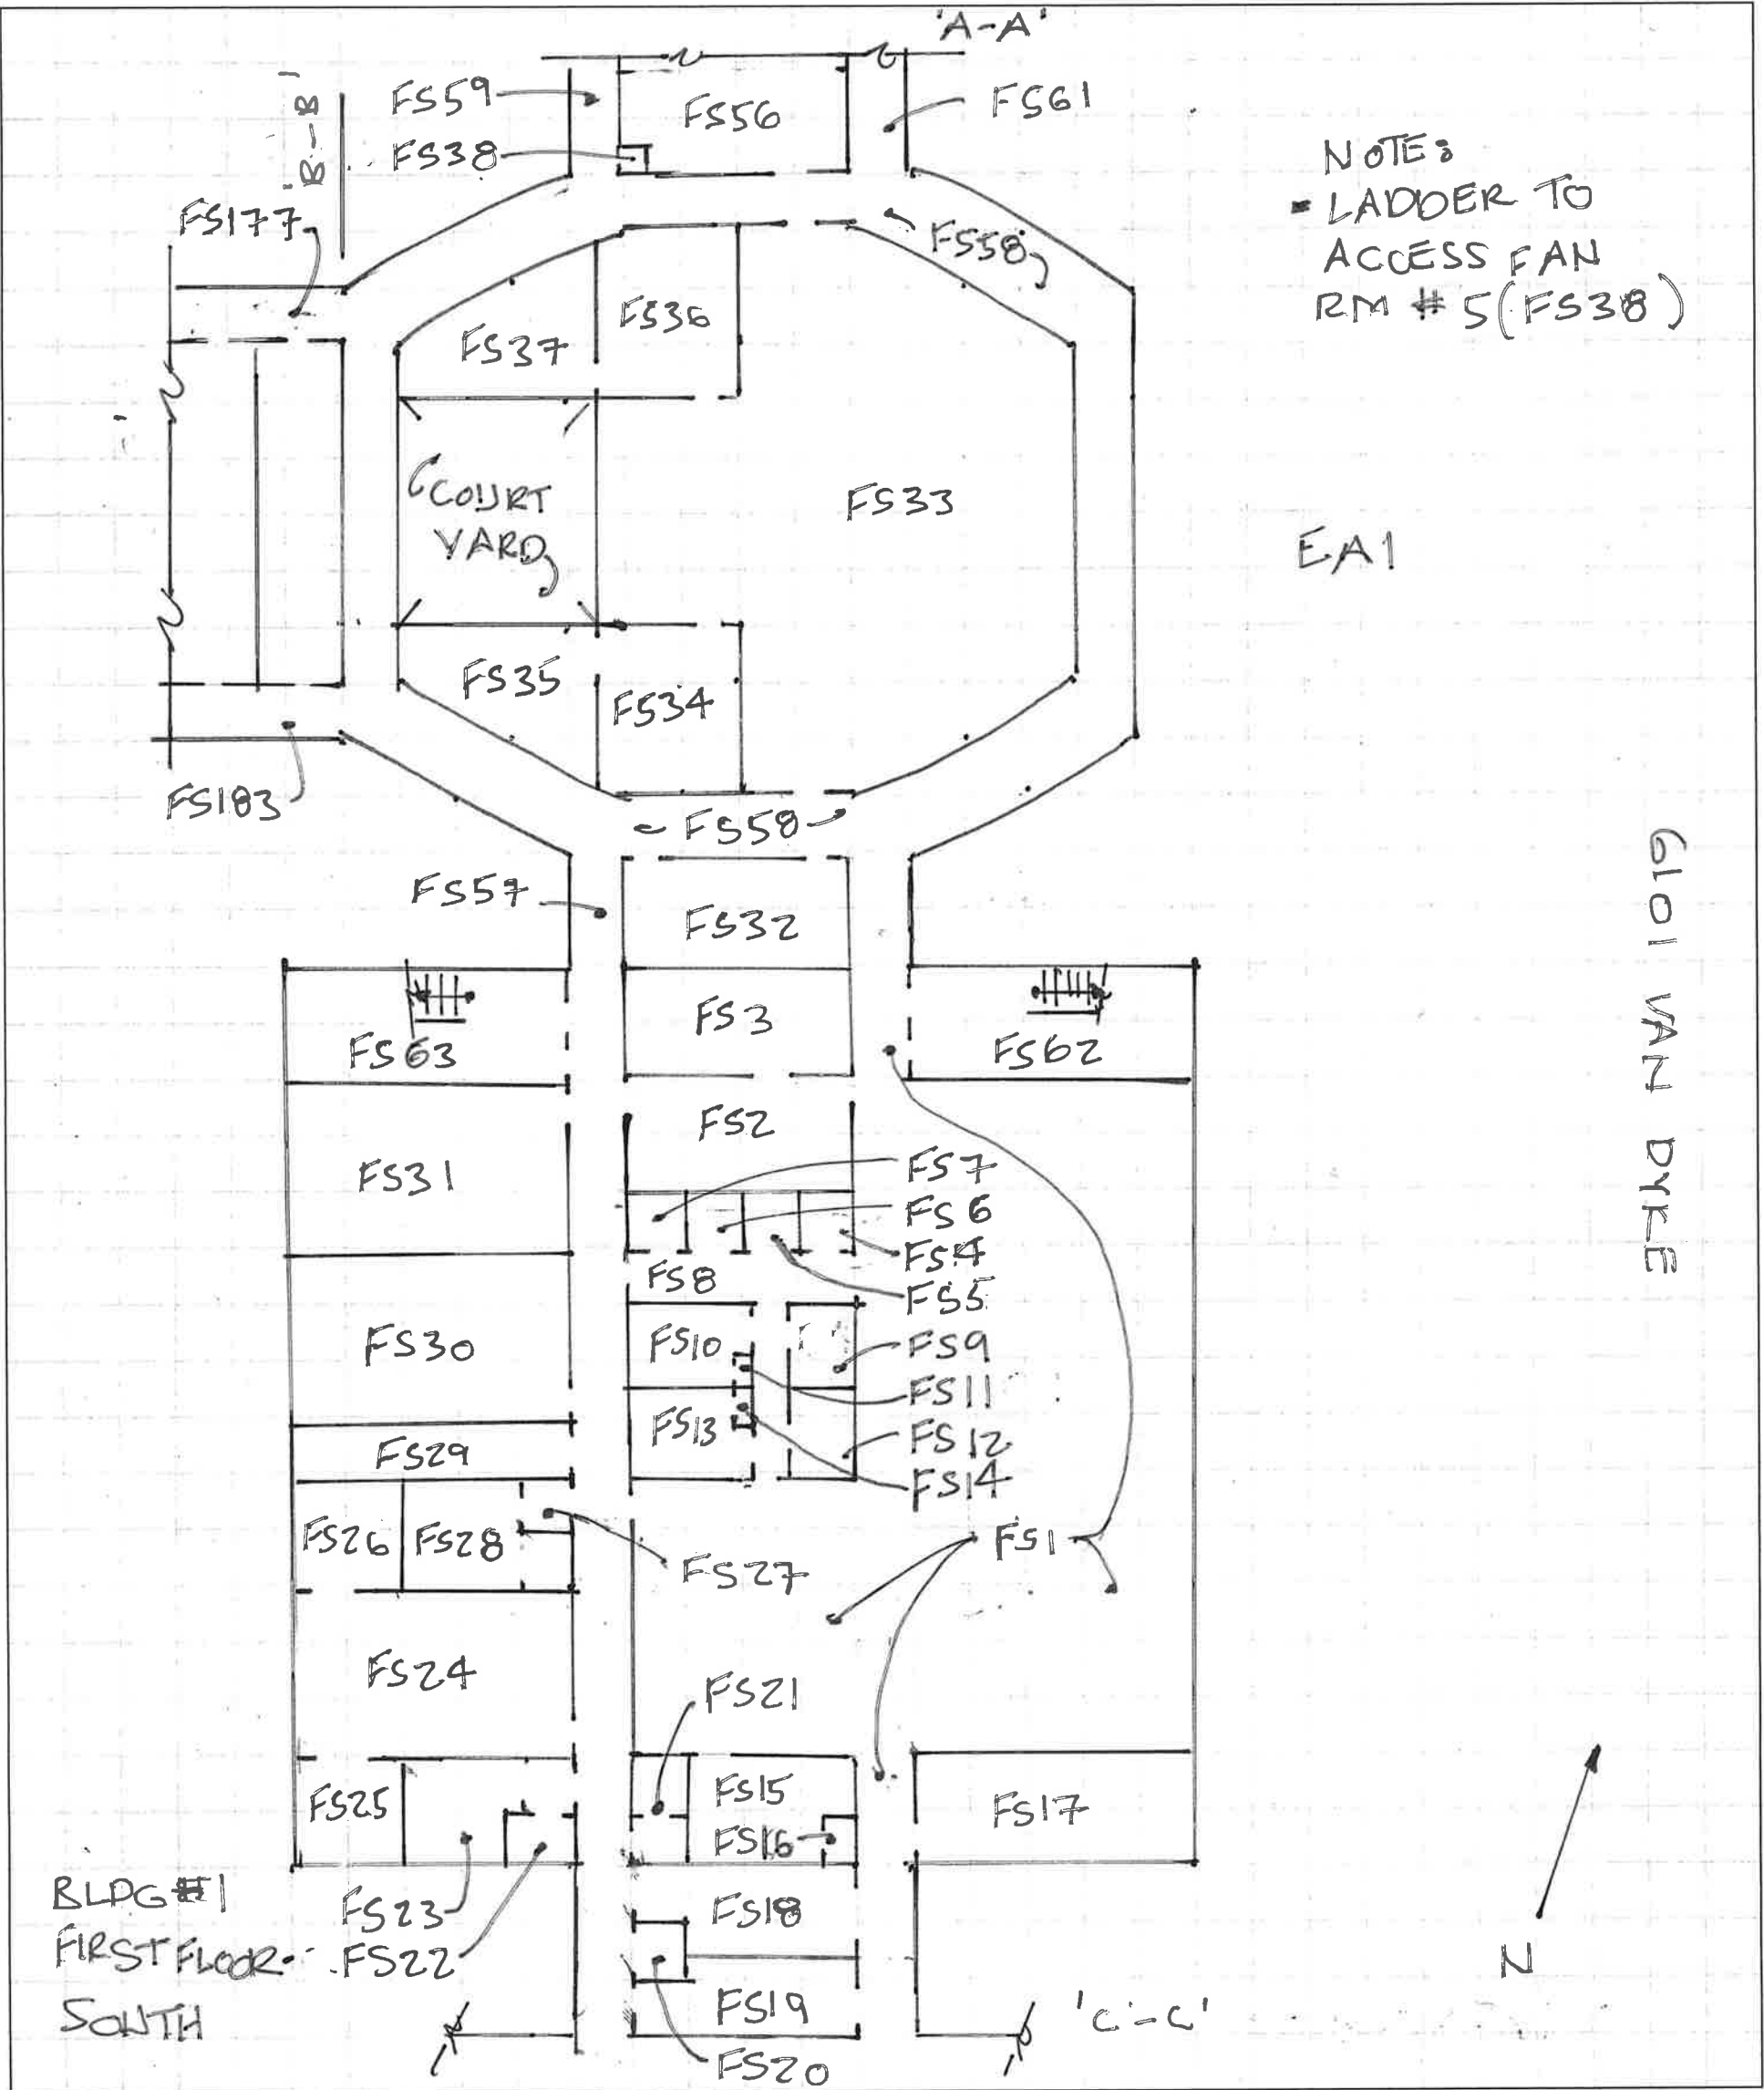 'A-A'
'B-B'
FS59
FS56
FS61
FS38
NOTE:
▪ LADDER TO
ACCESS FAN
RM # 5 (FS38)
FS177
FS58
FS36
FS37
COURT
YARD
FS33
EA1
FS35
FS34
FS183
FS58
FS57
FS32
6101 VAN DYKE
FS3
FS63
FS62
FS2
FS7
FS31
FS6
FS4
FS8
FS5
FS10
FS9
FS30
FS11
FS13
FS12
FS29
FS14
FS26
FS28
FS1
FS27
FS24
FS21
FS15
FS25
FS17
FS16
BLDG #1
FIRST FLOOR
SOUTH
FS23
FS22
FS18
N
FS19
'C-C'
FS20